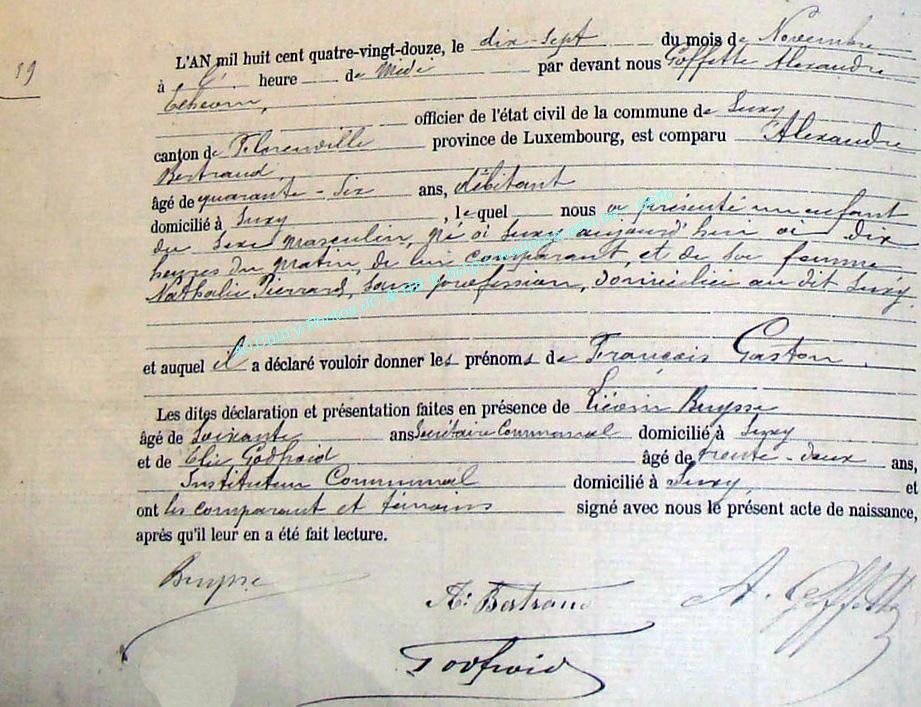 19
L'AN mil huit cent quatre-vingt-douze, le dix-sept du mois de Novembre
à heure de Midi par devant nous Goffette Alexandre
Echevin,
officier de l'état civil de la commune de Suxy
canton de Florenville province de Luxembourg, est comparu Alexandre
Bertrand
âgé de quarante-six ans, débitant
domicilié à Suxy, lequel nous a présenté un enfant
du sexe masculin, né à Suxy aujourd'hui à dix
heures du matin, de lui comparant, et de sa femme
Nathalie Pierrard, sans profession, domiciliée au dit Suxy.
et auquel il a déclaré vouloir donner les prénoms de François Gaston.
Les dites déclaration et présentation faites en présence de Buysse
âgé de soixante ans Secrétaire Communal domicilié à Suxy
et de Elie Godfroid âgé de trente-deux ans,
Instituteur Communal domicilié à Suxy, et
ont les comparant et témoins signé avec nous le présent acte de naissance,
après qu'il leur en a été fait lecture.
Buysse
A. Bertrand
A. Goffette
Godfroid